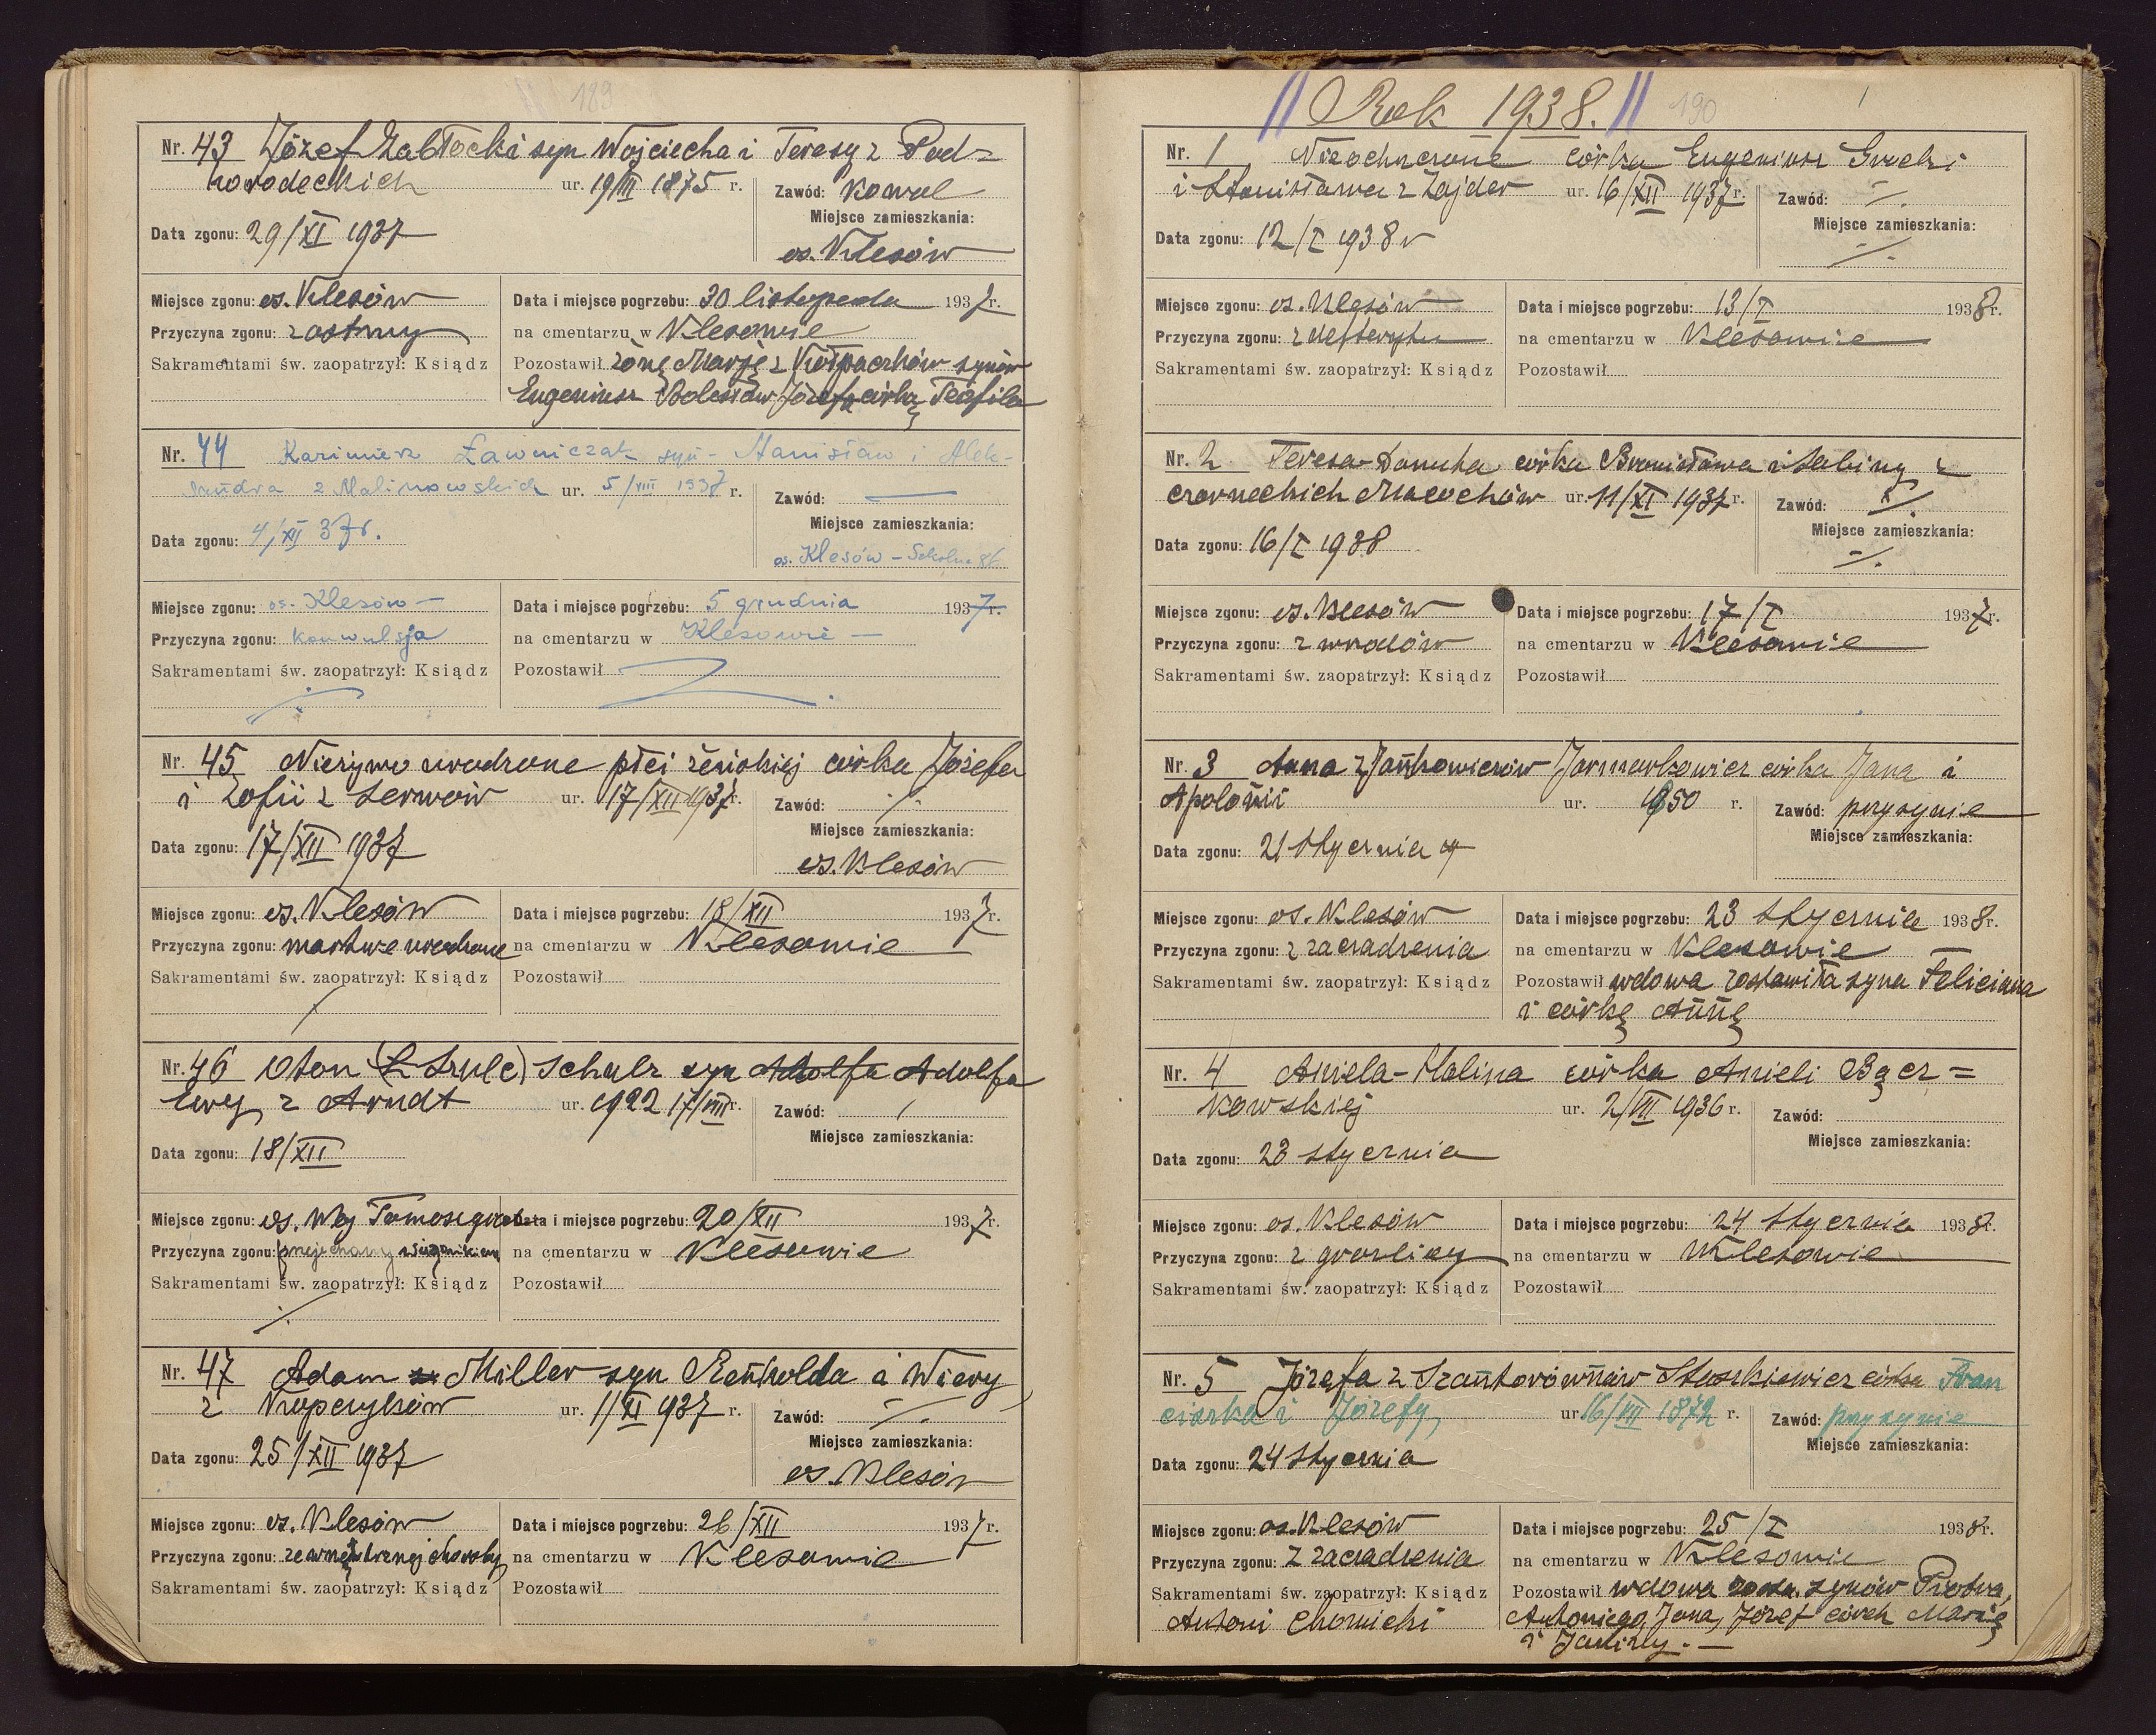 189
Nr. 43 Józef Zabłocki syn Wojciecha i Teresy z Pod=
horodeckich ur. 19/III 1875 r. Zawód: Kowal
Miejsce zamieszkania:
Data zgonu: 29/XI 1937
os. Klesów
Miejsce zgonu: os. Klesów Data i miejsce pogrzebu: 30 listopada 1937 r.
Przyczyna zgonu: z astmy na cmentarzu w Klesowie
Sakramentami św. zaopatrzył: Ksiądz Pozostawił żonę Marję z synów
Eugeniusz Bolesław Józefa córkę Teofila
Nr. 44 Kazimierz Ławniczak syn - Stanisław i Alek-
sandra z Malinowskich ur. 5/VIII 1937 r. Zawód: —
Miejsce zamieszkania:
Data zgonu: 4/XII 37r.
os. Klesów - Szkolna
Miejsce zgonu: os. Klesów — Data i miejsce pogrzebu: 5 grudnia 1937r.
Przyczyna zgonu: konwulsja na cmentarzu w Klesowie —
Sakramentami św. zaopatrzył: Ksiądz Pozostawił
Nr. 45 Nieżywo urodzone płci żeńskiej córka Józefa
i Zofii z Serwów ur. 17/XII 1937r. Zawód: ./.
Miejsce zamieszkania:
Data zgonu: 17/XII 1937
os. Klesów
Miejsce zgonu: os. Klesów Data i miejsce pogrzebu: 18/XII 1937 r.
Przyczyna zgonu: martwe urodzone na cmentarzu w Klesowie
Sakramentami św. zaopatrzył: Ksiądz Pozostawił
Nr. 46 Oton (Szulc) Schulz syn Adolfa Adolfa
Ewy z Arndt ur. 1922 17/VIII r. Zawód: /
Miejsce zamieszkania:
Data zgonu: 18/XII
Miejsce zgonu: os. Data i miejsce pogrzebu: 20/XII 1937 r.
Przyczyna zgonu: przejechany na cmentarzu w Klesowie
Sakramentami św. zaopatrzył: Ksiądz Pozostawił
./.
Nr. 47 Adam Miller syn Reinholda i Wiery
z ur. 1/XI 1937 r. Zawód: ./.
Miejsce zamieszkania:
Data zgonu: 25/XII 1937
os. Klesów
Miejsce zgonu: os. Klesów Data i miejsce pogrzebu: 26/XII 1937 r.
Przyczyna zgonu: zewnętrznej choroby na cmentarzu w Klesowie
Sakramentami św. zaopatrzył: Ksiądz Pozostawił
Rok 1938. 190
Nr. 1 Nieochrzczone córka Eugeniusz
i Stanisława z Zajder ur. 16/XII 1937r. Zawód: ./.
Miejsce zamieszkania:
Data zgonu: 12/I 1938 r
./.
Miejsce zgonu: os. Klesów Data i miejsce pogrzebu: 13/I 1938r.
Przyczyna zgonu: z na cmentarzu w Klesowie
Sakramentami św. zaopatrzył: Ksiądz Pozostawił
Nr. 2 Teresa-Danuta córka Bronisława i Sabiny z
Czarneckich Macochów ur. 11/XI 1937r. Zawód: ./.
Miejsce zamieszkania:
Data zgonu: 16/I 1938
./.
Miejsce zgonu: os. Klesów Data i miejsce pogrzebu: 17/I 1937r.
Przyczyna zgonu: z wrzodów na cmentarzu w Klesowie
Sakramentami św. zaopatrzył: Ksiądz Pozostawił
Nr. 3 Anna z Jańkowiczów Jarmarkowicz córka Jana i
Apolonii ur. 1850 r. Zawód: przy synie
Miejsce zamieszkania:
Data zgonu: 21 stycznia
Miejsce zgonu: os. Klesów Data i miejsce pogrzebu: 23 stycznia 1938r.
Przyczyna zgonu: z zaczadzenia na cmentarzu w Klesowie
Sakramentami św. zaopatrzył: Ksiądz Pozostawił wdowa zostawiła syna Feliciana
i córkę Annę
Nr. 4 Aniela-Halina córka Anieli Bącz=
kowskiej ur. 2/VII 1936 r. Zawód:
Miejsce zamieszkania:
Data zgonu: 23 stycznia
Miejsce zgonu: os. Klesów Data i miejsce pogrzebu: 24 stycznia 1938r.
Przyczyna zgonu: z gruźlicy na cmentarzu w Klesowie
Sakramentami św. zaopatrzył: Ksiądz Pozostawił
Nr. 5 Józefa z Staszkiewicz córka Fran
ciszka i Józefy, ur. 16/III 1872 r. Zawód: przy synie
Miejsce zamieszkania:
Data zgonu: 24 stycznia
Miejsce zgonu: os. Klesów Data i miejsce pogrzebu: 25/I 1938r.
Przyczyna zgonu: z zaczadzenia na cmentarzu w Klesowie
Sakramentami św. zaopatrzył: Ksiądz Pozostawił wdowa zosta. synów Piotra,
Antoni Chomicki Antoniego, Jana, Józef córek Marię
i Janiny. —